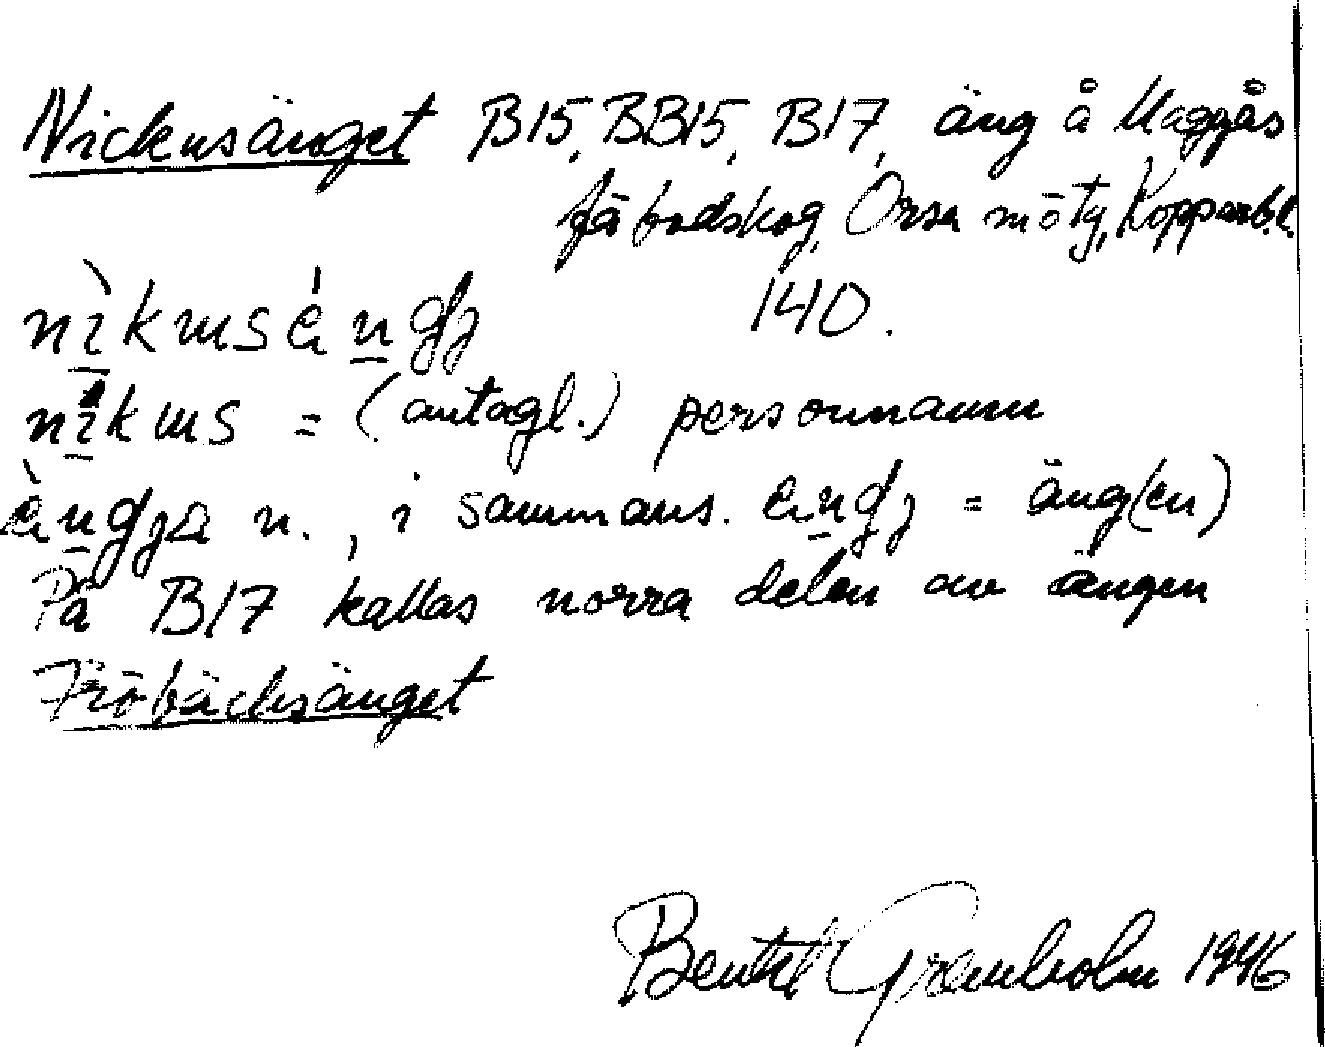 Nickusänget B15, BB15, B17, äng å Maggås
fäbodskog, Orsa möty, Kopparb.l.
140.
= (antagl.) personnamn
n., i sammans. = äng(en)
På B17 kallas norra delen av ängen
Fröbäcksänget
Bertil Granholm 1946